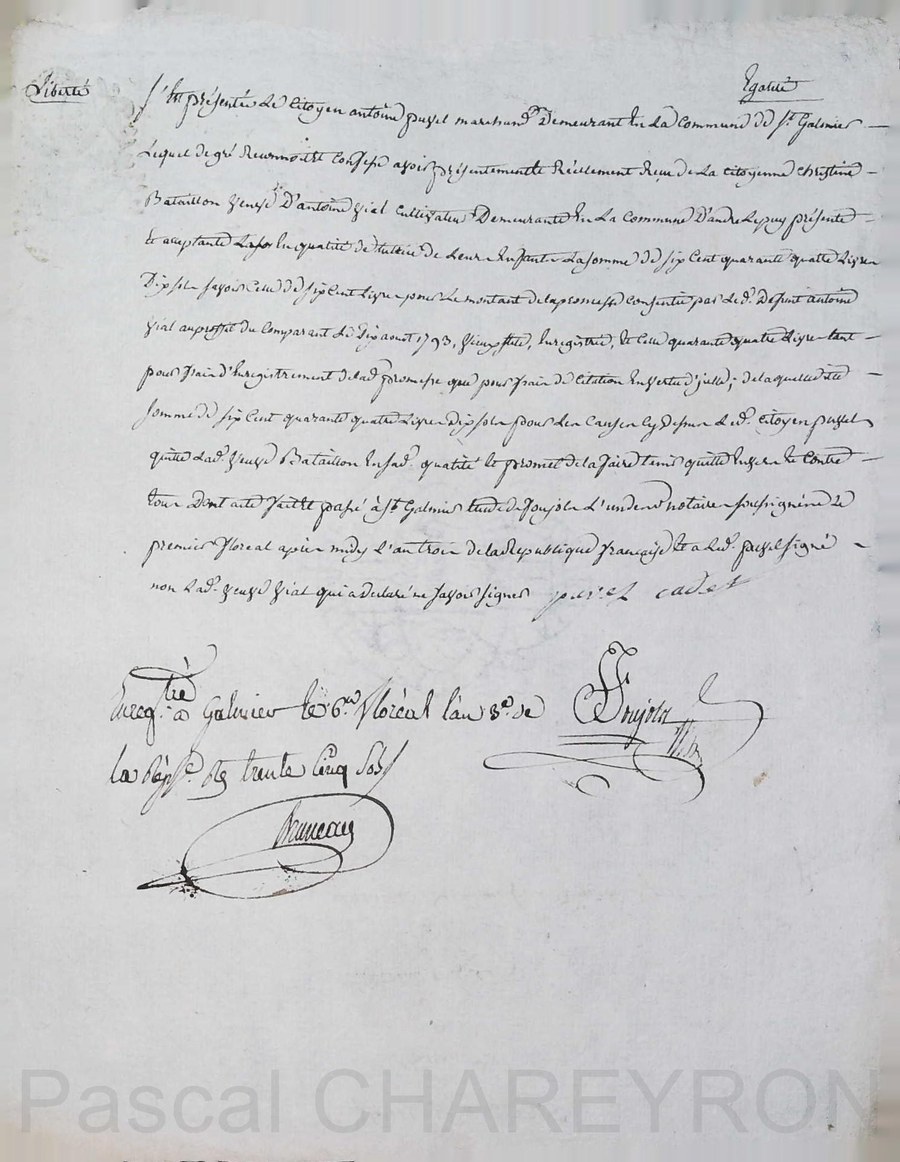 Liberté Egalité
S'est présenté le citoyen antoine puzel marchand Demeurant en la commune de st Galmier
Lequel de gré Reconnoit et confesse avoir présentement et Réellement Reçu de la citoyenne christine
Bataillon veuve D'antoine vial cultivateur Demeurante en la commune D'andrelepuy présente
et aceptante en qualité de tutrice de leurs enfants la somme de six cent quarante quatre livres
Dix sols savoir celle de six cent livres pour le montant de la promesse consentie par led. Defunt antoine
vial au proffit du comparant le Dix aout 1793, enregistrée, et celle quarante quatre livres tant
pour frais d'Enregistrement de lad. promesse que pour frais de citation en vertu d'icelle; de laquelle ditte
somme de six cent quarante quatre livres dix sols pour les causes cy dessus led. citoyen puzel
quitte lad. veuve Bataillon en sad. qualité et promet de la faire tenir quitte envers et contre
tous Dont acte fait et passé à st Galmier etude de Poujols L'un des notaires soussigné le
premier floreal après midy L'an trois de la Republique française et a led. puzel signé
non lad. veuve vial qui a declaré ne savoir signer puzel cadet
Enregtré a Galmier le 6 floréal l'an 3e. de
la Répe. Rç trente cinq sols Poujols